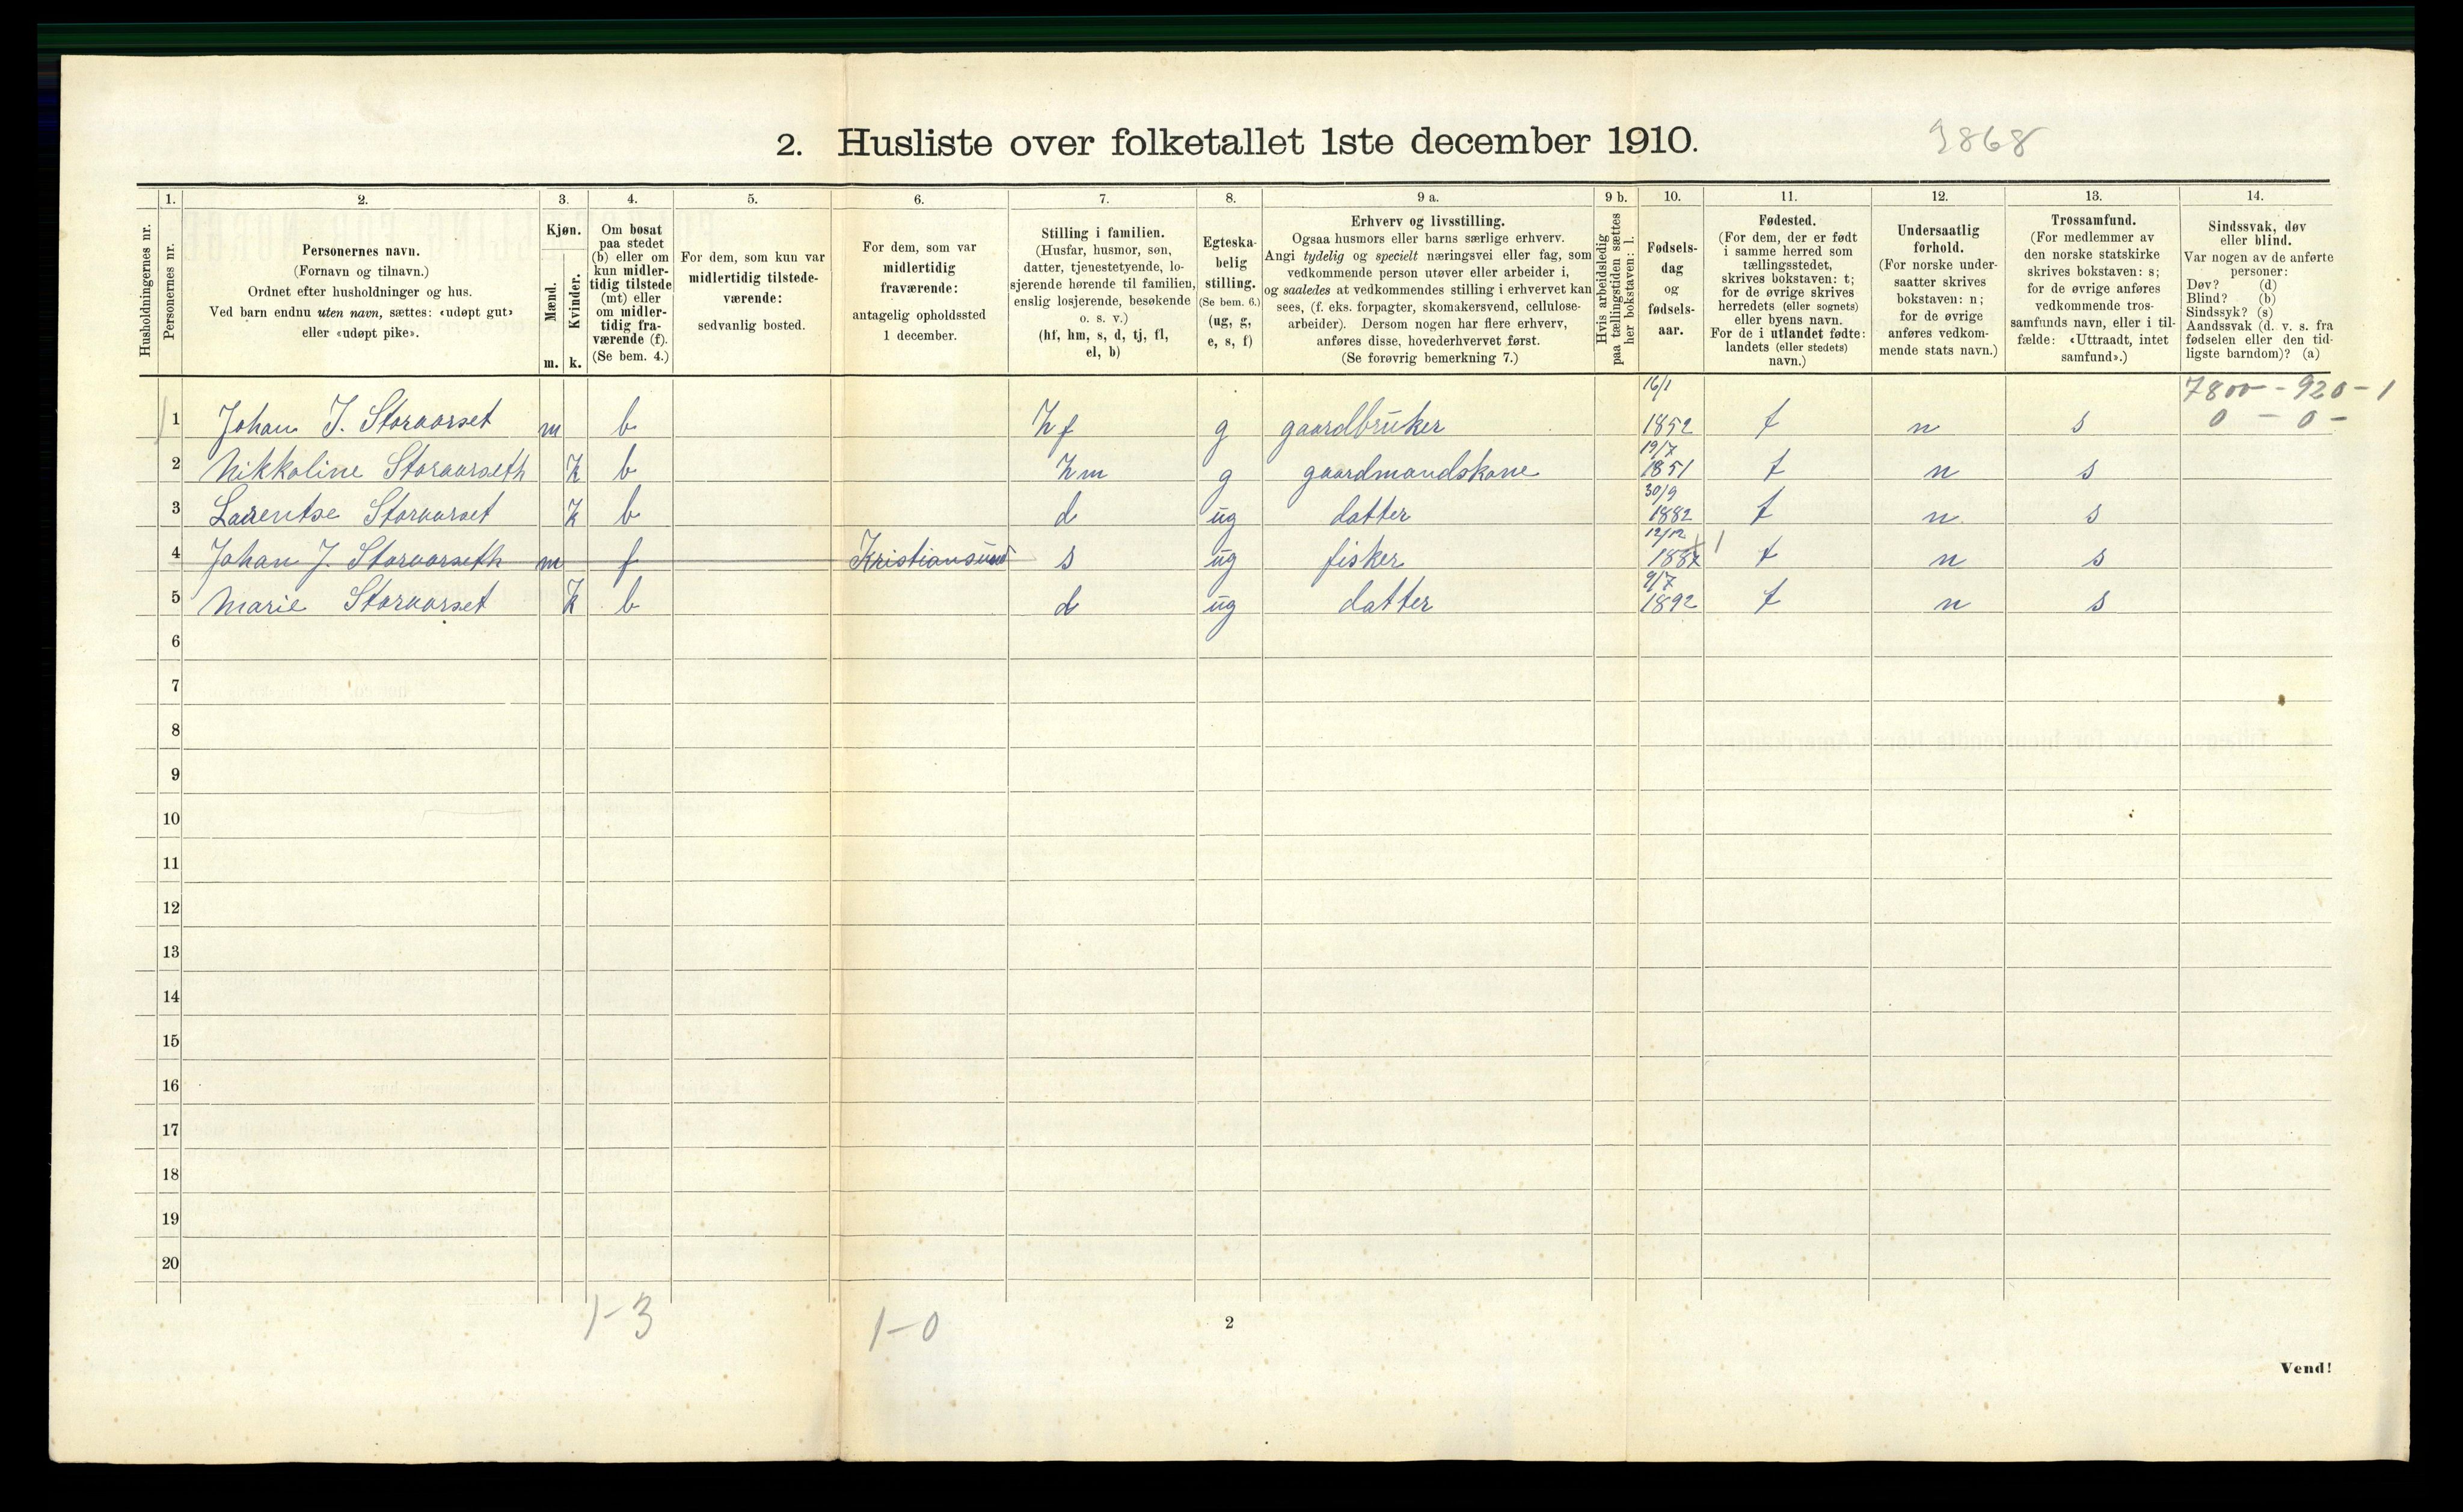 2. Husliste over folketallet 1ste december 1910.
3868
Husholdningernes nr.
1.
Personernes nr.
2.
Personernes navn.
(Fornavn og tilnavn.)
Ordnet efter husholdninger og hus.
Ved barn endnu uten navn, sættes: «udøpt gut»
eller «udøpt pike».
3.
Kjøn.
Mænd.
Kvinder.
m. k.
4.
Om bosat
paa stedet
(b) eller om
kun midler-
tidig tilstede
(mt) eller
om midler-
tidig fra-
værende (f).
(Se bem. 4.)
5.
For dem, som kun var
midlertidig tilstede-
værende:
sedvanlig bosted.
6.
For dem, som var
midlertidig
fraværende:
antagelig opholdssted
1 december.
7.
Stilling i familien.
(Husfar, husmor, søn,
datter, tjenestetyende, lo-
sjerende hørende til familien,
enslig losjerende, besøkende
o. s. v.)
(hf, hm, s, d, tj, fl,
el, b)
8.
Egteska-
belig
stilling.
(Se bem. 6.)
(ug, g,
e, s, f)
9 a.
Erhverv og livsstilling.
Ogsaa husmors eller barns særlige erhverv.
Angi tydelig og specielt næringsvei eller fag, som
vedkommende person utøver eller arbeider i,
og saaledes at vedkommendes stilling i erhvervet kan
sees, (f. eks. forpagter, skomakersvend, cellulose-
arbeider). Dersom nogen har flere erhverv,
anføres disse, hovederhvervet først.
(Se forøvrig bemerkning 7.)
9 b.
Hvis arbeidsledig
paa tællingstiden sættes
her bokstaven: l.
10.
Fødsels-
dag
og
fødsels-
aar.
11.
Fødested.
(For dem, der er født
i samme herred som
tællingsstedet,
skrives bokstaven: t;
for de øvrige skrives
herredets (eller sognets)
eller byens navn.
For de i utlandet fødte:
landets (eller stedets)
navn.)
12.
Undersaatlig
forhold.
(For norske under-
saatter skrives
bokstaven: n;
for de øvrige
anføres vedkom-
mende stats navn.)
13.
Trossamfund.
(For medlemmer av
den norske statskirke
skrives bokstaven: s;
for de øvrige anføres
vedkommende tros-
samfunds navn, eller i til-
fælde: «Uttraadt, intet
samfund».)
14.
Sindssvak, døv
eller blind.
Var nogen av de anførte
personer:
Døv? (d)
Blind? (b)
Sindssyk? (s)
Aandssvak (d. v. s. fra
fødselen eller den tid-
ligste barndom)? (a)
7800 - 920 - 1
0 - 0 -
1 Johan J. Storaarset m b hf g gaardbruker 16/1 1852 t n s
2 Nikkoline Storaarseth k b hm g gaardmandskone 19/7 1851 t n s
3 Larentse Storaarset k b d ug datter 30/9 1882 t n s
4 Johan J. Storaarseth m f Kristiansund s ug fisker 12/12 1887 t n s
5 Marie Storaarset k b d ug datter 9/7 1892 t n s
6
7
8
9
10
11
12
13
14
15
16
17
18
19
20
1-3
1-0
2
Vend!